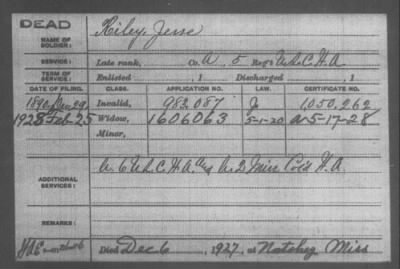 DEAD
NAME OF SOLDIER: Riley, Jesse
SERVICE: Late rank, Co. A, 5 Reg't U.S.C.H.A
TERM OF SERVICE: Enlisted , 1 Discharged , 1
DATE OF FILING. CLASS. APPLICATION NO. LAW. CERTIFICATE NO.
1890 Invalid, 983,087 1,050,262
1928 Feb 25 Widow, 1606063 5-1-20 a 5-17-28
Minor,
ADDITIONAL SERVICES: A. 6 U.S.C.H.A. A. 2 Miss Cold H.A.
REMARKS:
Died Dec 6, 1927, at Natchez Miss